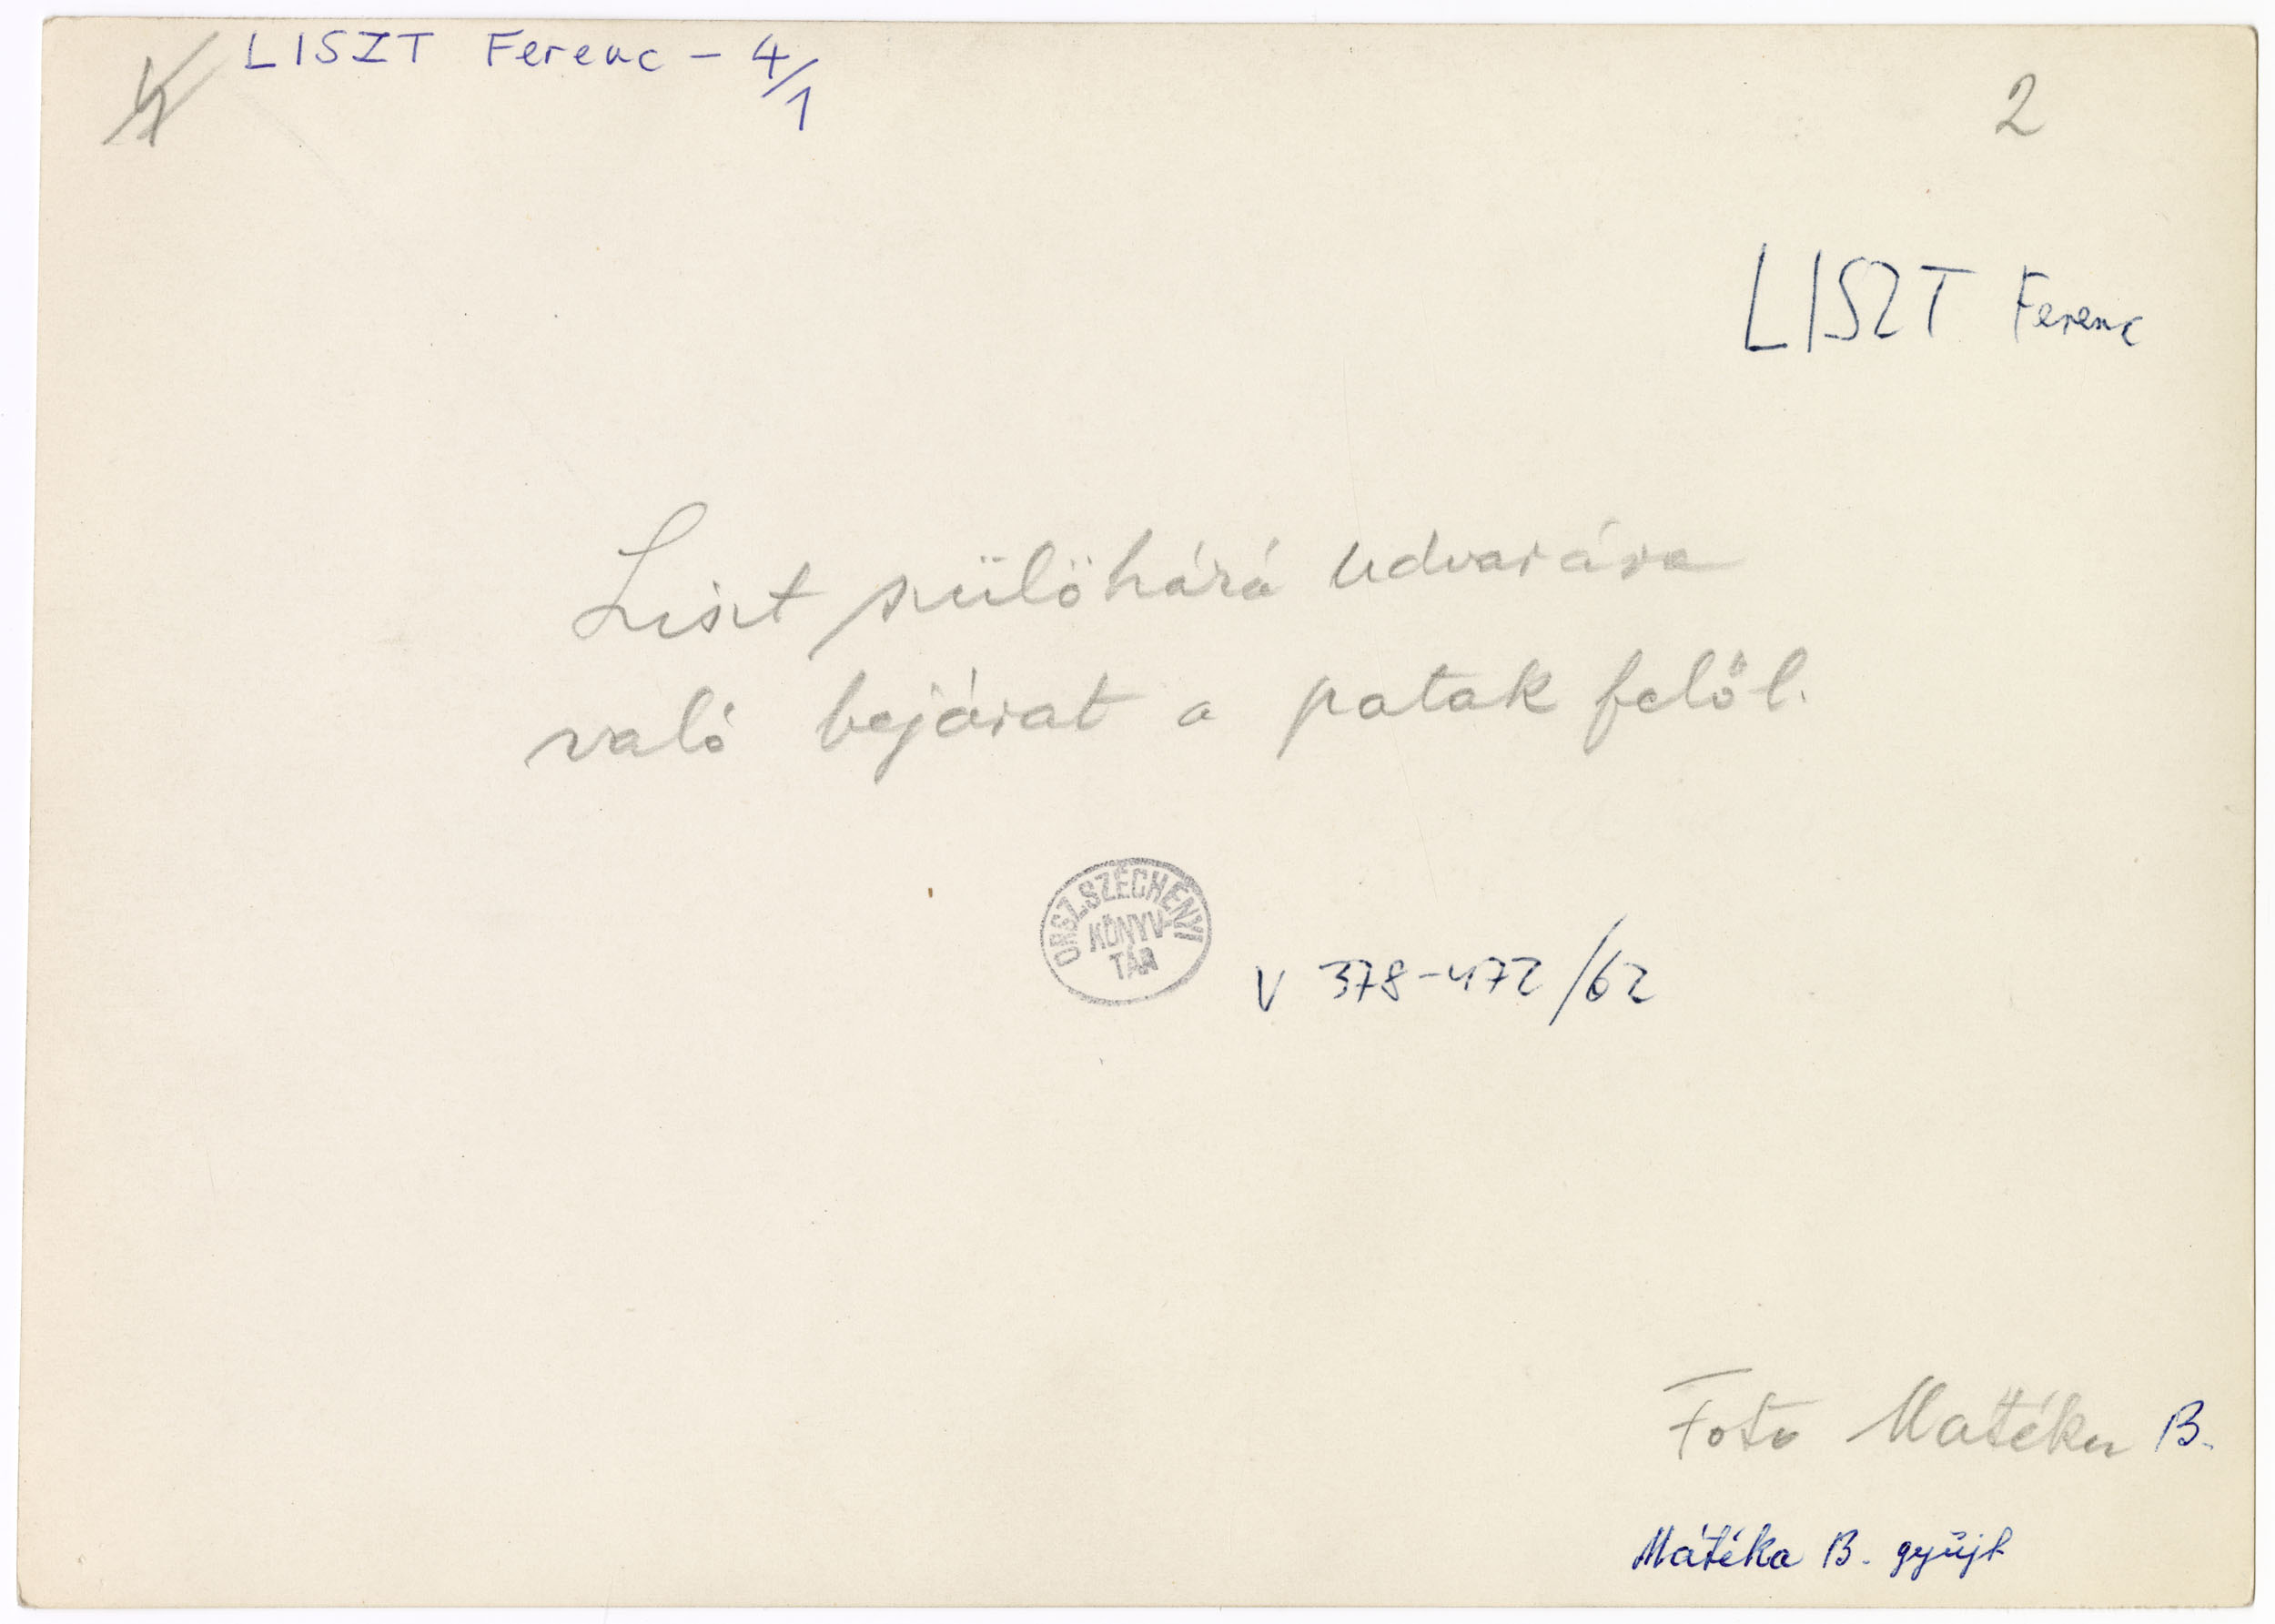 LISZT Ferenc - 4/1
2
LISZT Ferenc
Liszt szülöházá udvarára
való bejárat a patak felől.
ORSZ. SZÉCHÉNYI
KÖNYV-
TÁR
V 378-472/62
Foto Matéka B.
Mátéka B. gyűjt